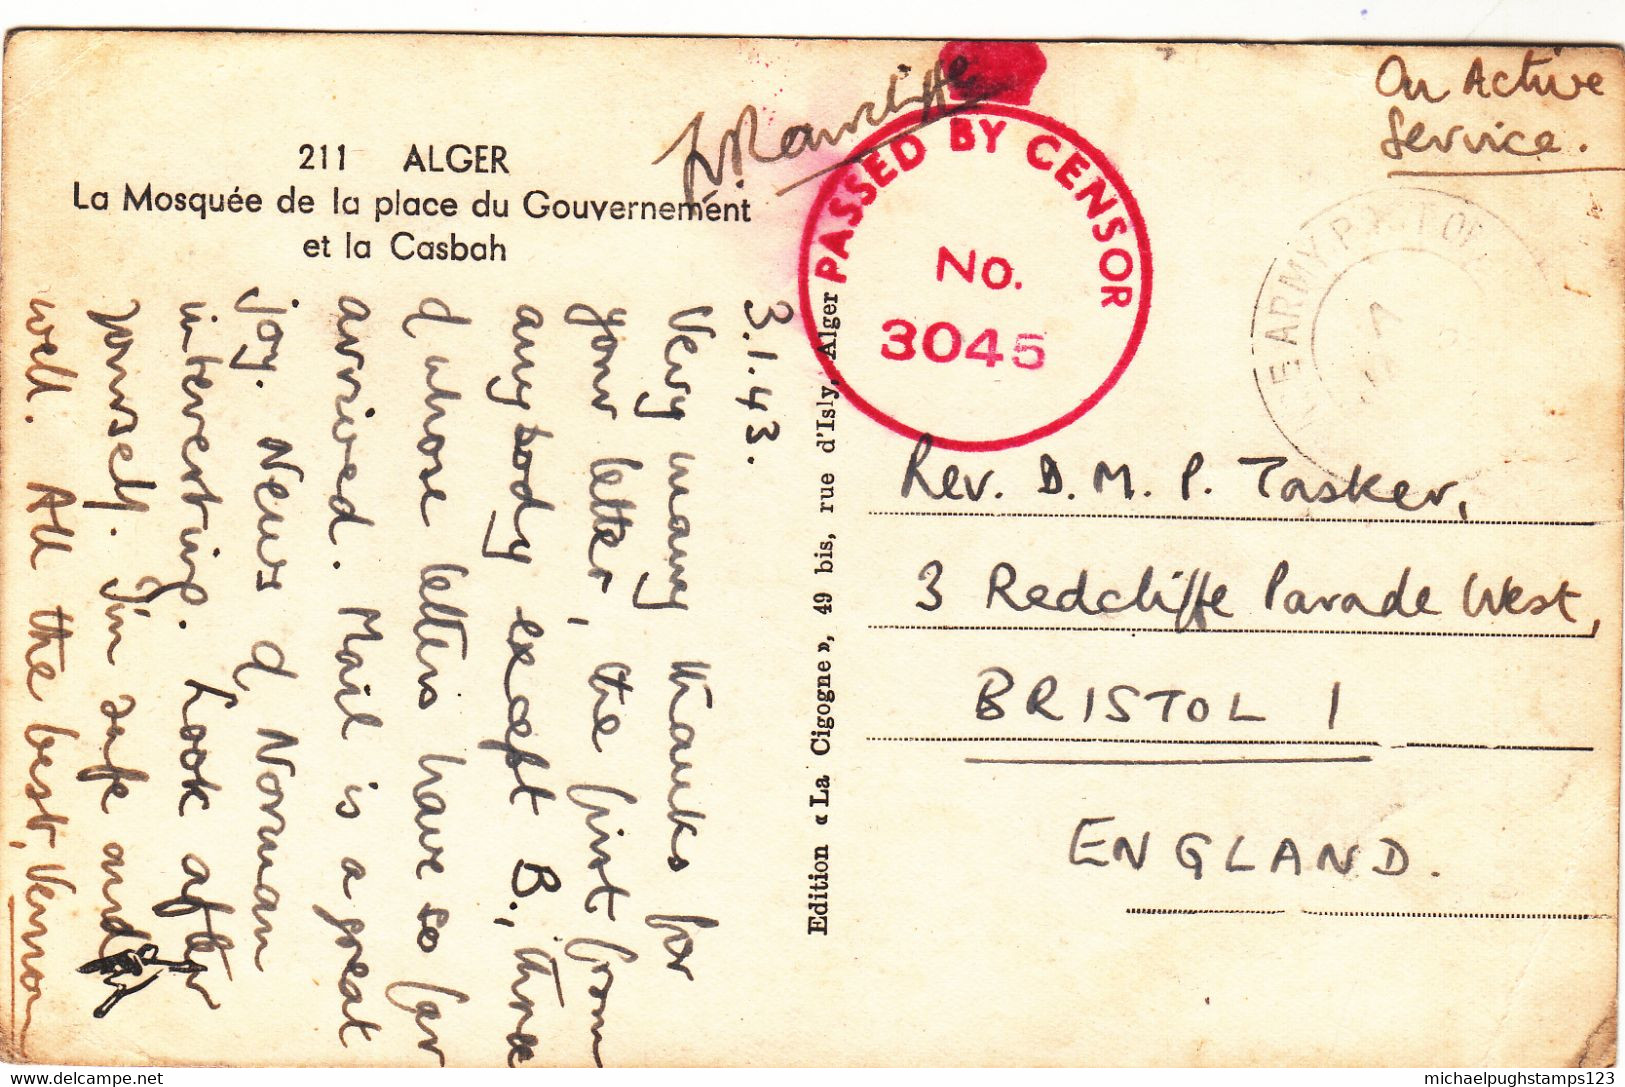 211 ALGER
La Mosquée de la place du Gouvernement
et la Casbah
On Active
Service.
PASSED BY CENSOR
No.
3045
ARMY POST OF
3.1.43.
Very many thanks for
your letter, the first from
anybody except B., three
of whose letters have so far
arrived. Mail is a great
joy. News of Norman
interesting. Look after
yourself. I'm safe and
well. All the best, Vernon
Edition « La Cigogne », 49 bis, rue d'Isly, Alger
Rev. D. M. P. Tasker,
3 Redcliffe Parade West,
BRISTOL 1
ENGLAND.
delcampe.net
michaelpughstamps123